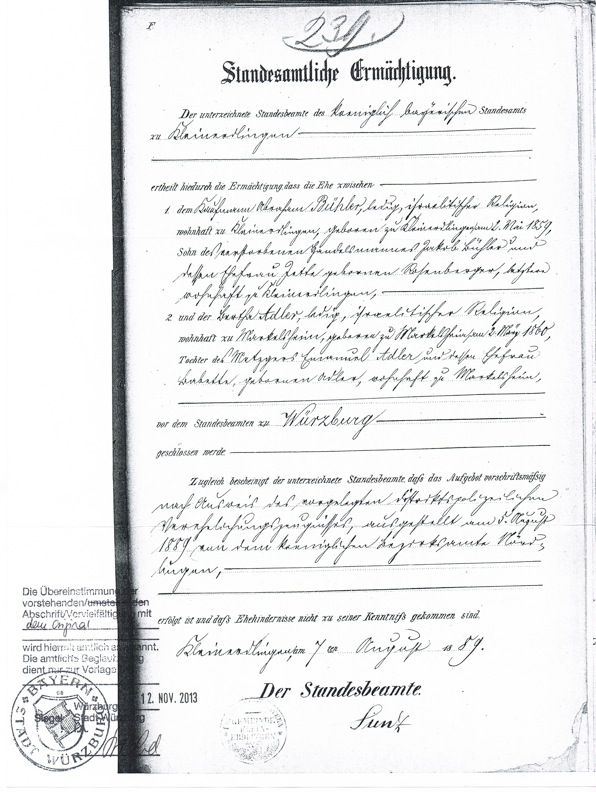 F
239.
Standesamtliche Ermächtigung.
Der unterzeichnete Standesbeamte des koeniglich bayerischen Standesamts
zu Kleinerdlingen
ertheilt hiedurch die Ermächtigung, dass die Ehe zwischen
1. dem Kaufmann Abraham Bühler, ledig, israelitischer Religion,
wohnhaft zu Kleinerdlingen, geboren zu Kleinerdlingen am 2. Mai 1859,
Sohn des verstorbenen Handelsmannes Jakob Bühler und
dessen Ehefrau Jette gebornen Rosenberger, letztere
wohnhaft zu Kleinerdlingen,
2. und der Bertha Adler, ledig, israelitischer Religion,
wohnhaft zu Markelsheim, geboren zu Markelsheim am 2. März 1860,
Tochter des Metzgers Emanuel Adler und dessen Ehefrau
Babette, gebornen Adler, wohnhaft zu Markelsheim,
vor dem Standesbeamten zu Würzburg
geschlossen werde.
Zugleich bescheinigt der unterzeichnete Standesbeamte, daß das Aufgebot vorschriftsmäßig
nach Ausweis des vorgelegten distriktspolizeilichen
Verehelichungszeugnisses, ausgestellt am 5. August
1889 von dem koeniglichen Bezirksamte Nörd-
lingen,
erfolgt ist und daß Ehehindernisse nicht zu seiner Kenntniß gekommen sind.
Kleinerdlingen, am 7ten August 1889.
Der Standesbeamte.
Die Übereinstimmung der
vorstehenden/umstehenden
Abschrift/Vervielfältigung mit
dem Original
wird hiermit amtlich anerkannt.
Die amtliche Beglaubigung
dient nur zur Vorlage
Würzburg 12. NOV. 2013
Siegel Stadt Würzburg
BAYERN
STADT WÜRZBURG